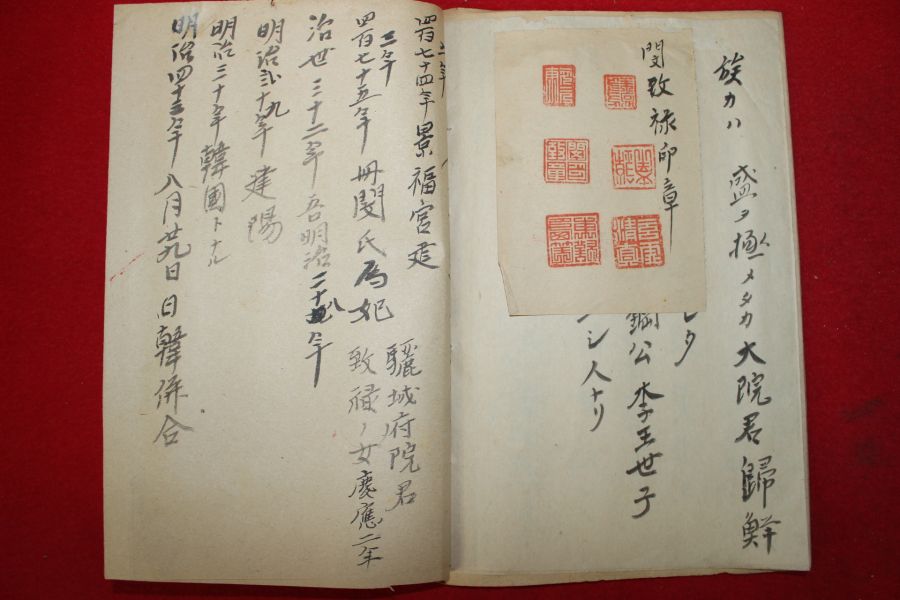 族カハ 盛ヲ極メタカ大院君歸鮮
シタ
鋼公 李王世子
シ人ナリ
閔致禄印章
四百七十四年 景福宮定
三年
四百七十五年 冊閔氏為妃 驪城府院君
致禄ノ女慶應二年
治世三十二年 吾明治二十八年
明治二十九年 建陽
明治三十年韓國トナル
明治四十三年八月廿九日 日韓併合